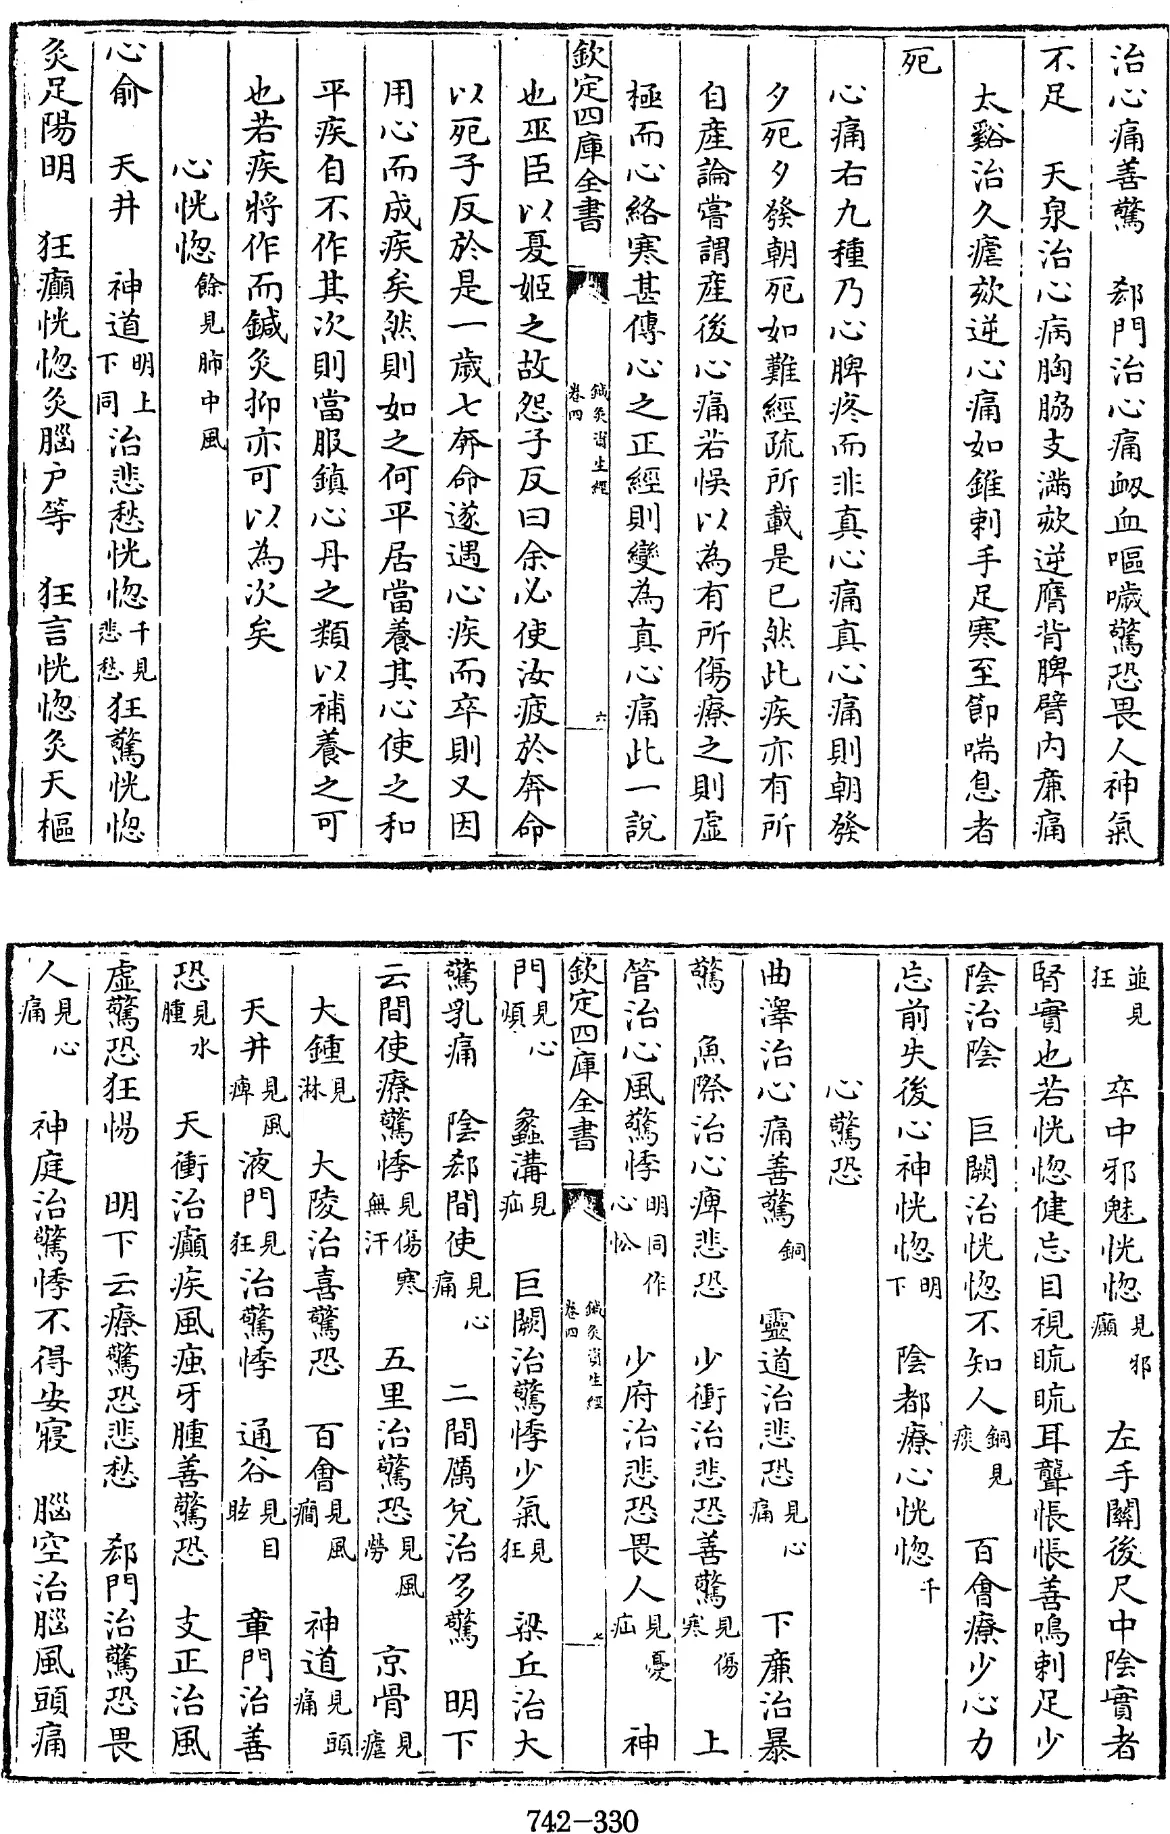 治心痛善驚　郄門治心痛衂血嘔噦驚恐畏人神氣
不足　天泉治心病胸脇支滿欬逆膺背胛臂内廉痛
太谿治久瘧欬逆心痛如錐刺手足寒至節喘息者
死
心痛右九種乃心脾疼而非真心痛真心痛則朝發
夕死夕發朝死如難經疏所載是已然此疾亦有所
自産論嘗謂産後心痛若悞以為有所傷療之則虚
極而心絡寒甚傳心之正經則變為真心痛此一說
欽定四庫全書　鍼灸資生經卷四　六
也巫臣以夏姬之故怨子反曰余必使汝疲於奔命
以死子反於是一歲七奔命遂遇心疾而卒則又因
用心而成疾矣然則如之何平居當養其心使之和
平疾自不作其次則當服鎮心丹之類以補養之可
也若疾將作而鍼灸抑亦可以為次矣
心恍惚餘見肺中風
心俞　天井　神道明上下同治悲愁恍惚千見悲愁狂驚恍惚
灸足陽明　狂癲恍惚灸腦户等　狂言恍惚灸天樞
並見狂　卒中邪魅恍惚見邪癲　左手關後尺中陰實者
腎實也若恍惚健忘目視䀮䀮耳聾悵悵善鳴刺足少
陰治陰　巨闕治恍惚不知人銅見痰　百會療少心力
忘前失後心神恍惚明下　陰都療心恍惚千
心驚恐
曲澤治心痛善驚銅　靈道治悲恐見心痛　下廉治暴
驚　魚際治心痺悲恐　少衝治悲恐善驚見傷寒　上
管治心風驚悸明同作心忪　少府治悲恐畏人見憂疝　神
欽定四庫全書　鍼灸資生經卷四　七
門見心煩　蠡溝見疝　巨闕治驚悸少氣見狂　梁丘治大
驚乳痛　陰郄間使見心痛　二間厲兌治多驚　明下
云間使療驚悸見傷寒無汗　五里治驚恐見風勞　京骨見瘧
大鍾見淋　大陵治喜驚恐　百會見風癇　神道見頭痛
天井見風痺　液門見狂治驚悸　通谷見目眩　章門治善
恐見水腫　天衝治癲疾風痓牙腫善驚恐　支正治風
虚驚恐狂惕　明下云療驚恐悲愁　郄門治驚恐畏
人見心痛　神庭治驚悸不得安寢　腦空治腦風頭痛
742-330